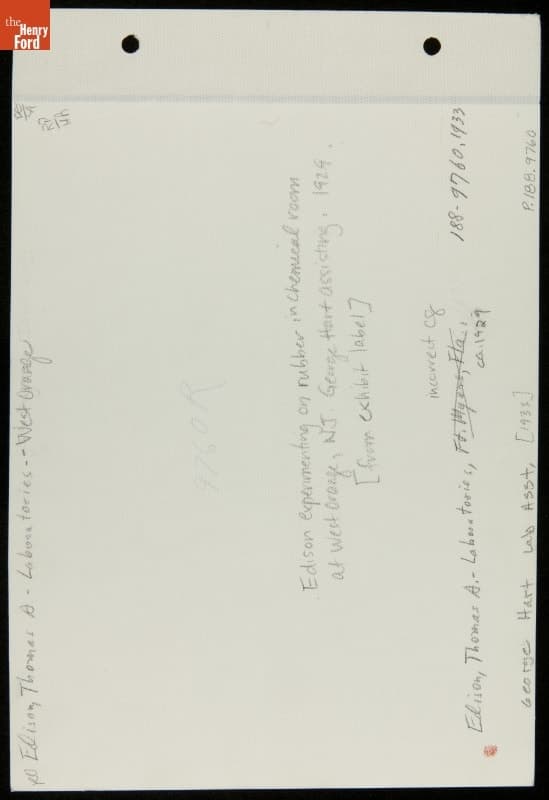 the
Henry
Ford
Edison, Thomas A - Laboratories -- West Orange
9760R
Edison experimenting on rubber in chemical room
at West Orange, N.J. George Hart assisting. 1929.
[from exhibit label]
incorrect cg
Edison, Thomas A. - Laboratories, Ft. Myers, Fla., 188-9760.1933
ca. 1929
George Hart Lab Asst, [1933] P.188.9760